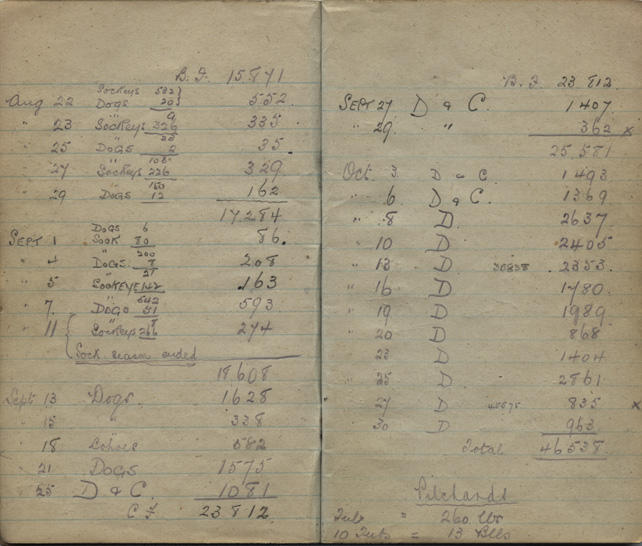 B.F. 15871
Sockeys 532
Aug 22 Dogs 20 552
" 9
" 23 Sockeys 326 335
" 25 Dogs 2 35
" 27 Sockeys 226 329
" 150
" 29 Dogs 12 162
17,284
Dogs 6
SEPT 1 Sock 80 86.
" 200
" 4 DOGS 8 208
" 21
" 5 SOCKEYE 142 .163
" 542
" 7. DOGS 51 593
" 8
" 11 Sockeys 266 274
Sock. season ended
18,608
Sept 13 Dogs. 1628
" 15 " 338
" 18 Cohoes 582
" 21 DOGS 1575
" 25 D & C. 1081
C.F. 23812.
B.F. 23,812.
SEPT 27 D & C. 1407
" 29. " 362 x
25,581
Oct. 3. D & C. 1493
" 6 D & C. 1369
" 8 D. 2637
" 10 D 2405
" 13 D 2353.
" 16 D 1780.
" 19 D 1989
" 20 D 868
" 23 D 1404
" 25 D 2861
" 27 D 835 x
" 30 D 963
Total 46538.
Pilchards
Tub = 260 lbs
10 Tubs = 13 Blls